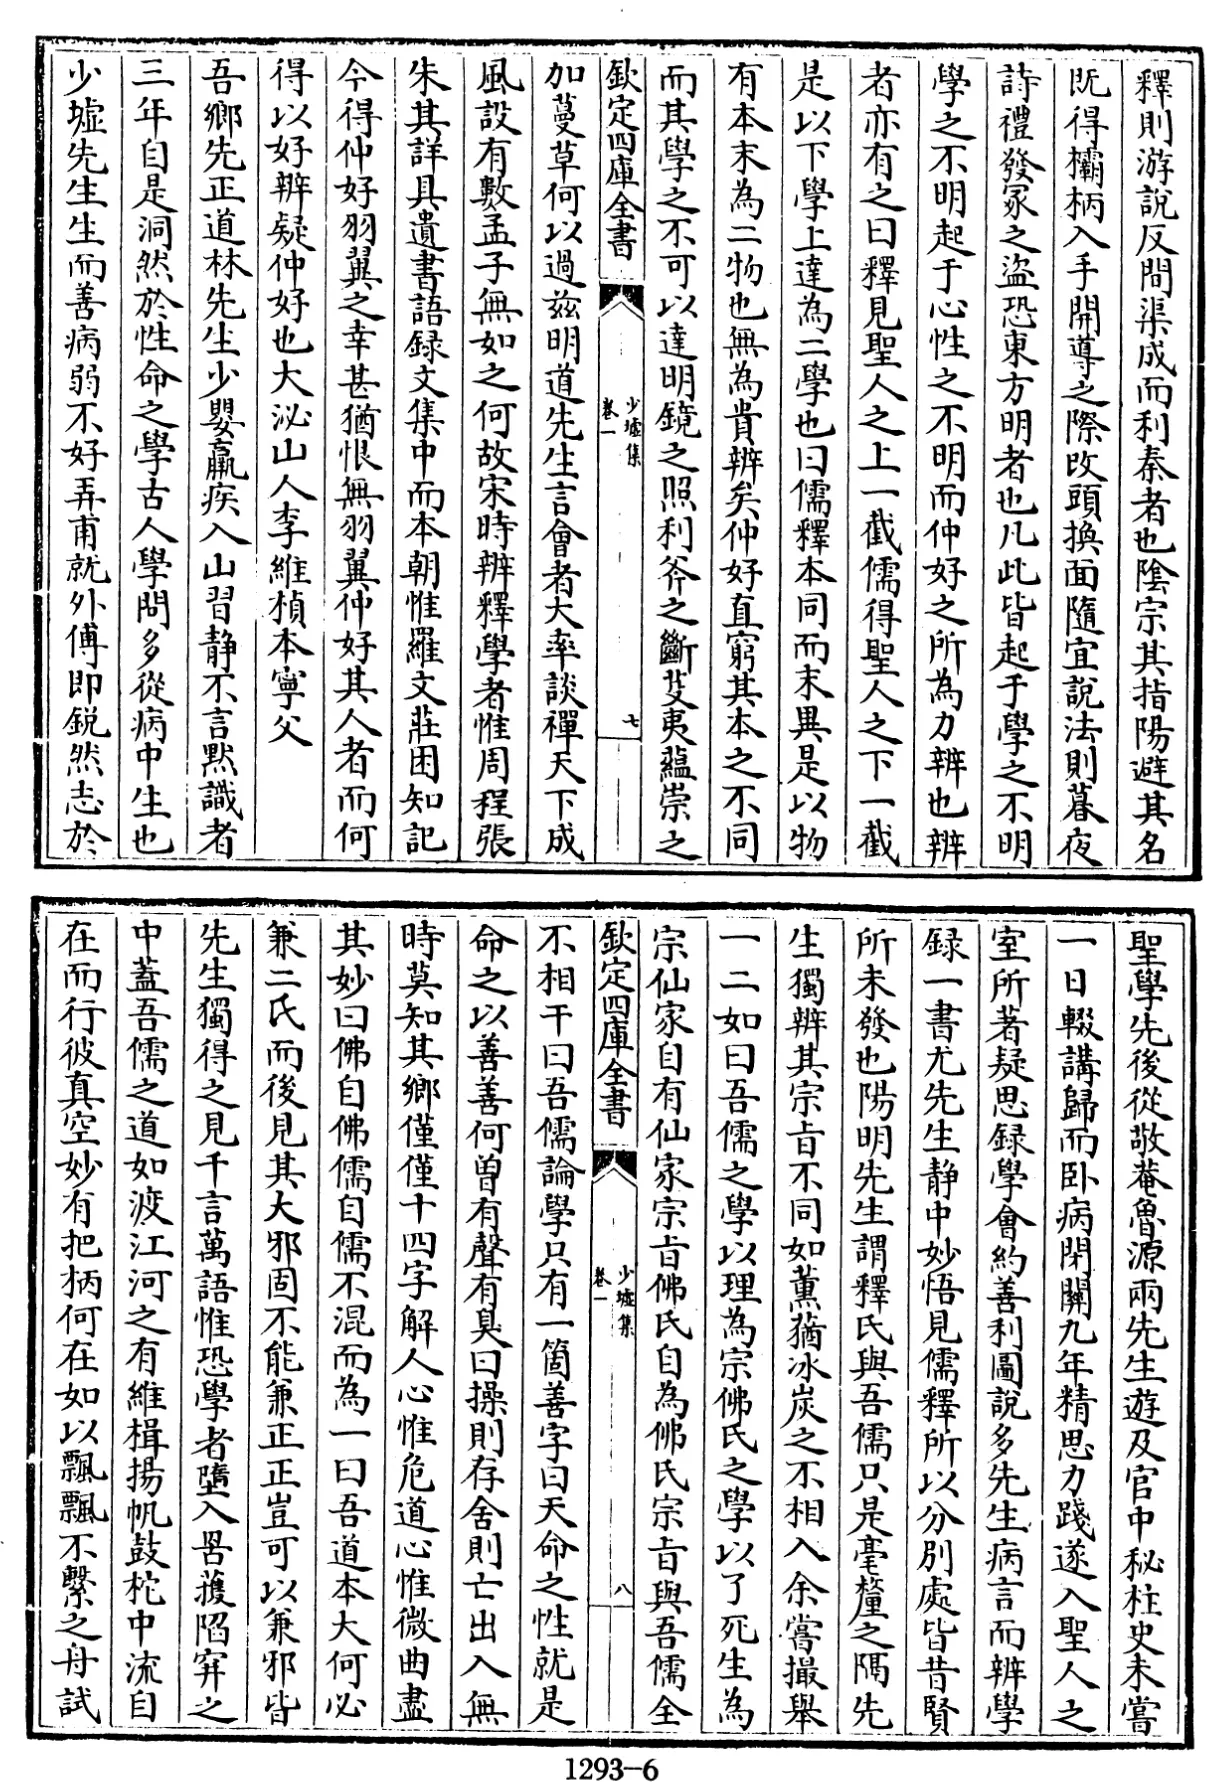 釋則游說反間渠成而利秦者也陰宗其指陽避其名
既得欛柄入手開導之際改頭換面隨宜說法則暮夜
詩禮發冢之盜恐東方明者也凡此皆起于學之不明
學之不明起于心性之不明而仲好之所為力辨也辨
者亦有之曰釋見聖人之上一截儒得聖人之下一截
是以下學上達為二學也曰儒釋本同而末異是以物
有本末為二物也無為貴辨矣仲好直窮其本之不同
而其學之不可以達明鏡之照利斧之斷芟夷蘊崇之
欽定四庫全書
少墟集
卷一
七
加蔓草何以過茲明道先生言會者大率談禪天下成
風設有數孟子無如之何故宋時辨釋學者惟周程張
朱其詳具遺書語録文集中而本朝惟羅文莊困知記
今得仲好羽翼之幸甚猶恨無羽翼仲好其人者而何
得以好辨疑仲好也大泌山人李維楨本寧父
吾鄉先正道林先生少嬰羸疾入山習静不言黙識者
三年自是洞然於性命之學古人學問多從病中生也
少墟先生生而善病弱不好弄甫就外傅即鋭然志於
聖學先後從敬菴魯源兩先生遊及官中秘柱史未嘗
一日輟講歸而卧病閉關九年精思力踐遂入聖人之
室所著疑思録學會約善利圖說多先生病言而辨學
録一書尤先生静中妙悟見儒釋所以分別處皆昔賢
所未發也陽明先生謂釋氏與吾儒只是毫釐之隔先
生獨辨其宗旨不同如薰蕕冰炭之不相入余嘗撮舉
一二如曰吾儒之學以理為宗佛氏之學以了死生為
宗仙家自有仙家宗旨佛氏自為佛氏宗旨與吾儒全
欽定四庫全書
少墟集
卷一
八
不相干曰吾儒論學只有一箇善字曰天命之性就是
命之以善善何曾有聲有臭曰操則存舍則亡出入無
時莫知其鄉僅僅十四字解人心惟危道心惟微曲盡
其妙曰佛自佛儒自儒不混而為一曰吾道本大何必
兼二氏而後見其大邪固不能兼正正豈可以兼邪皆
先生獨得之見千言萬語惟恐學者墮入罟擭陷穽之
中蓋吾儒之道如渡江河之有維楫揚帆鼓柁中流自
在而行彼真空妙有把柄何在如以飄飄不繫之舟試
1293-6